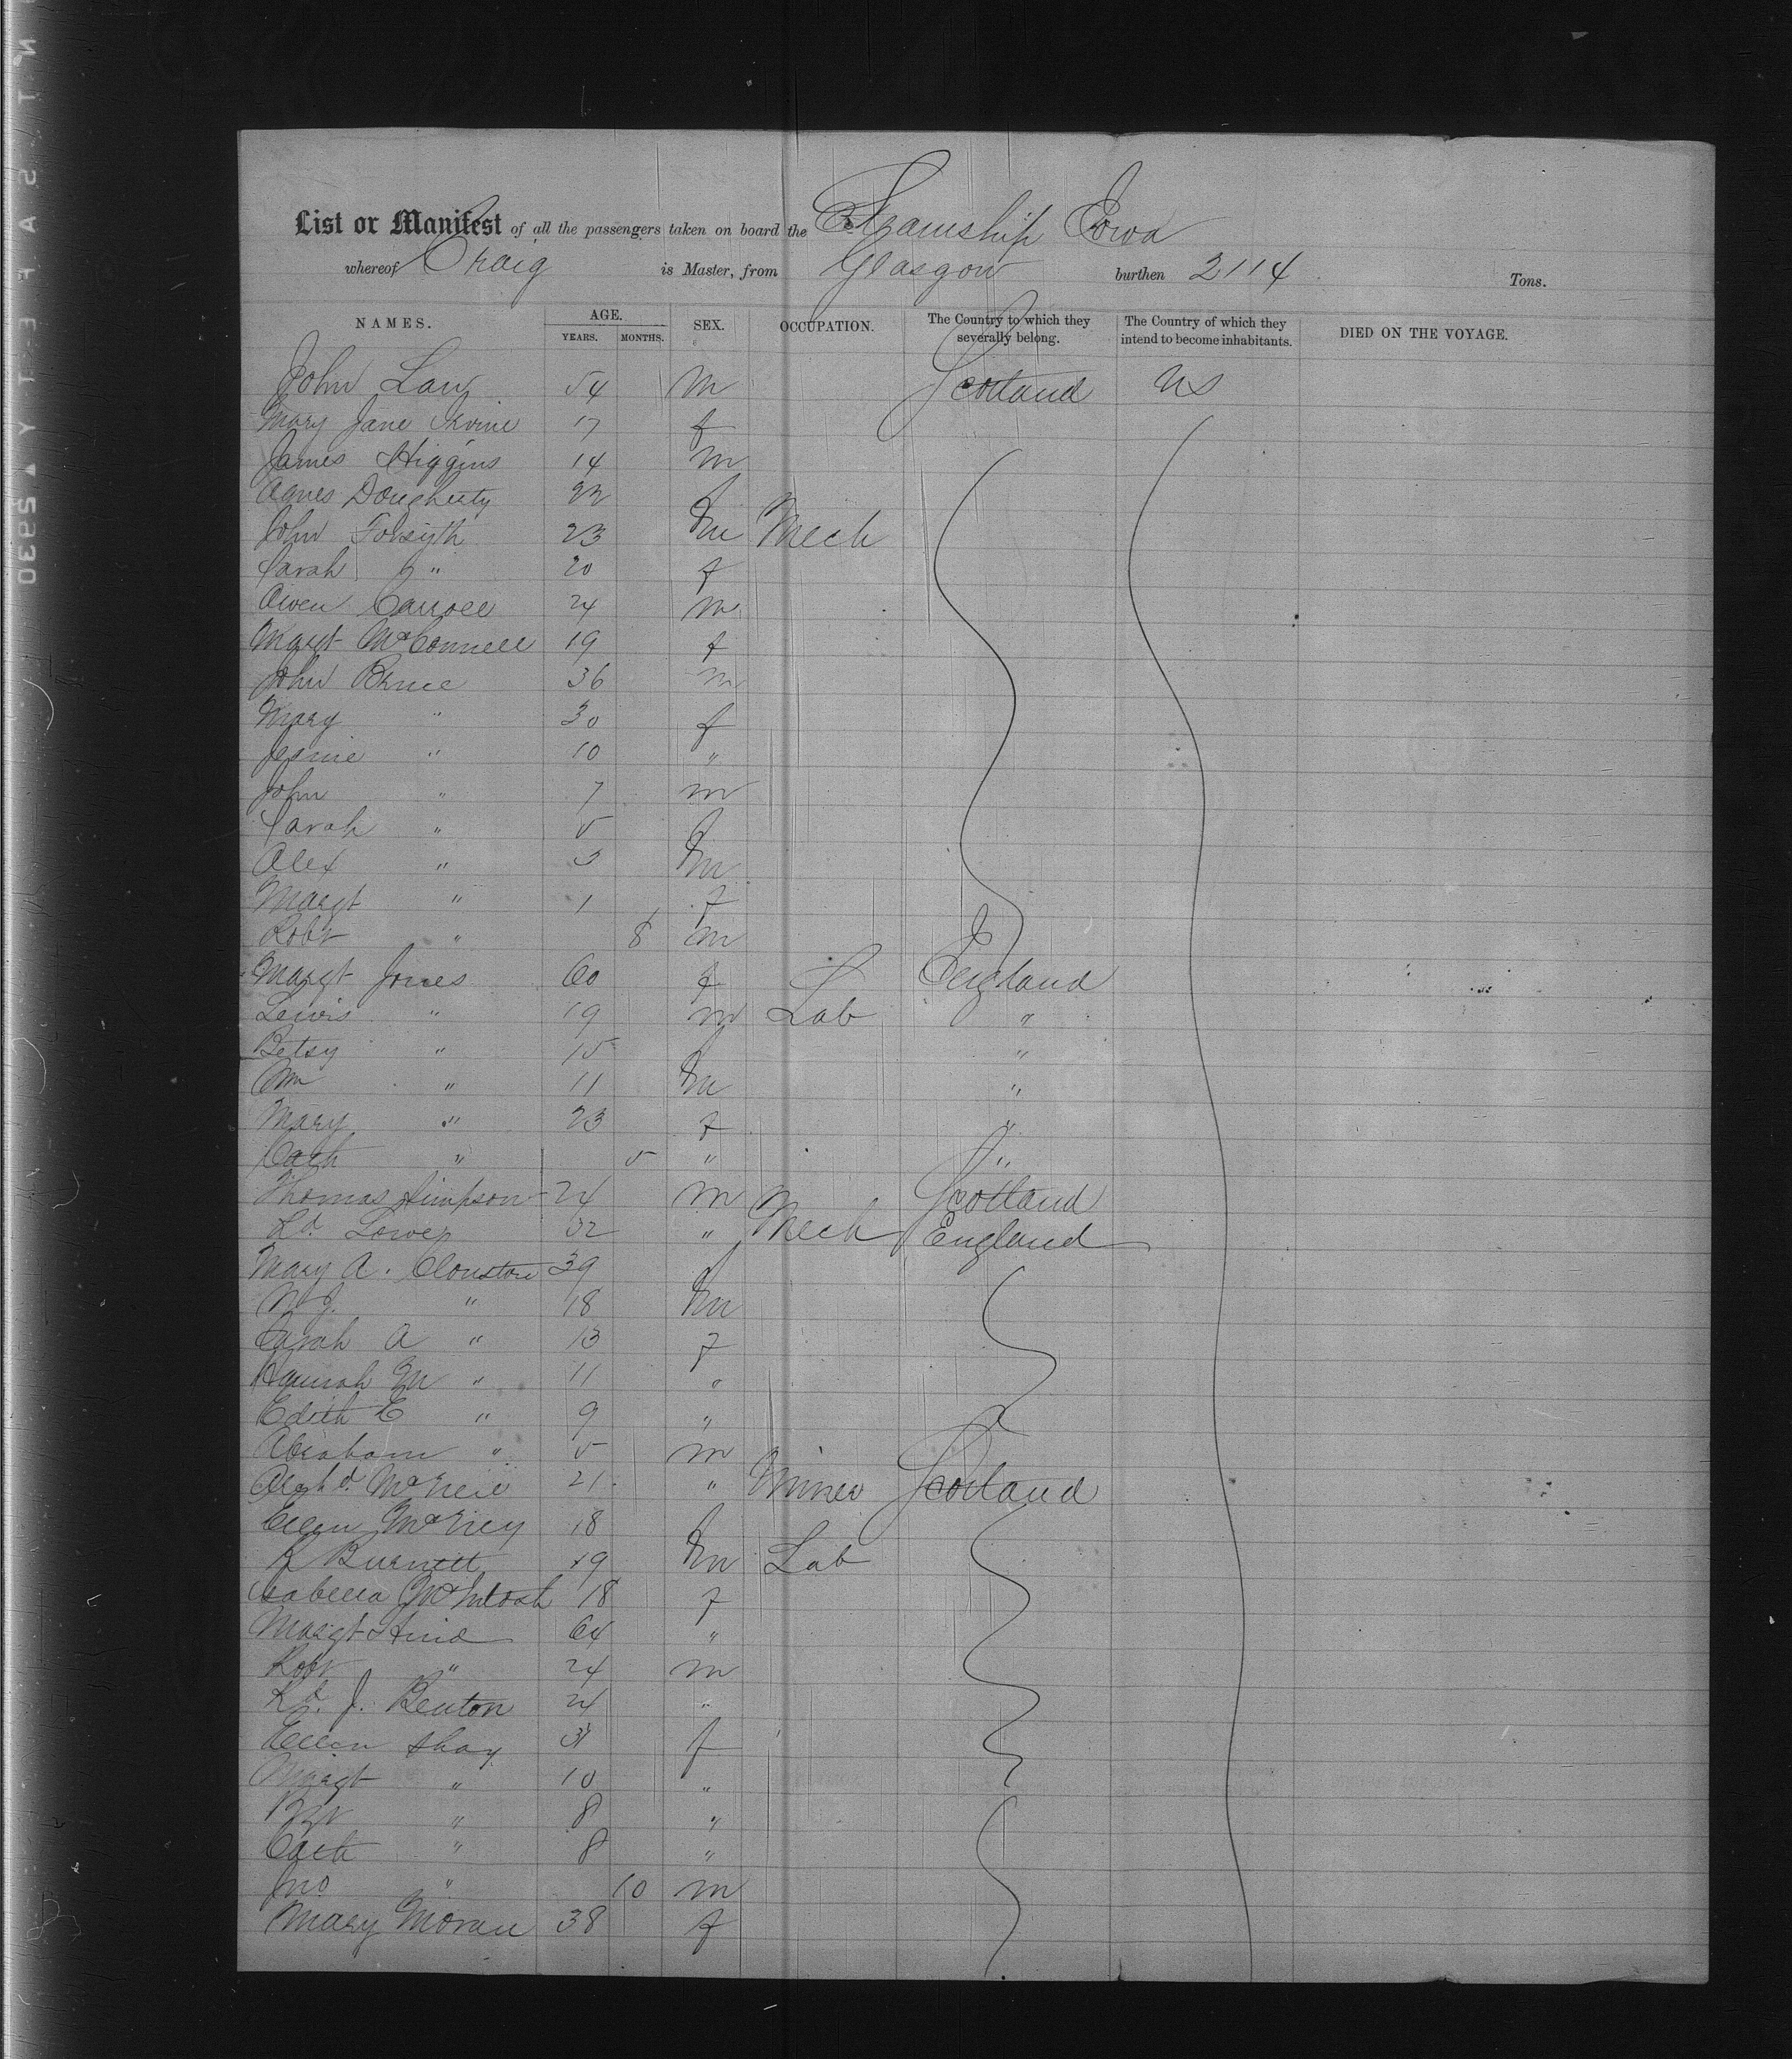 List or Manifest of all the passengers taken on board the Steamship Iowa
whereof Craig is Master, from Glasgow burthen 2114 Tons.
NAMES. AGE. YEARS. MONTHS. SEX. OCCUPATION. The Country to which they severally belong. The Country of which they intend to become inhabitants. DIED ON THE VOYAGE.
John Law 54 m Scotland US
Mary Jane Irvine 17 f
James Higgins 14 m
Agnes Dougherty 22 f
John Forsyth 23 m Mech
Sarah " 20 f
Owen Carroll 24 m
Margt McConnell 19 f
John Bruce 36 m
Mary " 30 f
Jessie " 10 "
John " 7 m
Sarah " 5 f
Alex " 3 m
Margt " 1 f
Robt " 8 m
Margt Jones 60 f England
Lewis " 19 m Lab "
Betsy " 15 f "
Wm " 11 m "
Mary " 23 f "
Cath " 5 " "
Thomas Simpson 24 m Scotland
Rd. Lower 32 " Mech England
Mary A. Clouston 39 f
" 18 m
Sarah A " 13 f
Hannah M " 11 "
Edith E " 9 "
Abraham " 5 m
Archd. McNeil 21 " Miner Scotland
Ellen 18 f
R Burnett 19 m Lab
Isabella McIntosh 18 f
Margt Hind 64 "
Robt " 24 m
Rd. J. Benton 24 "
Ellen Shay 31 f
Margt " 10 "
" 8 "
Cath " 8 "
Jno " 10 m
Mary Moran 38 f